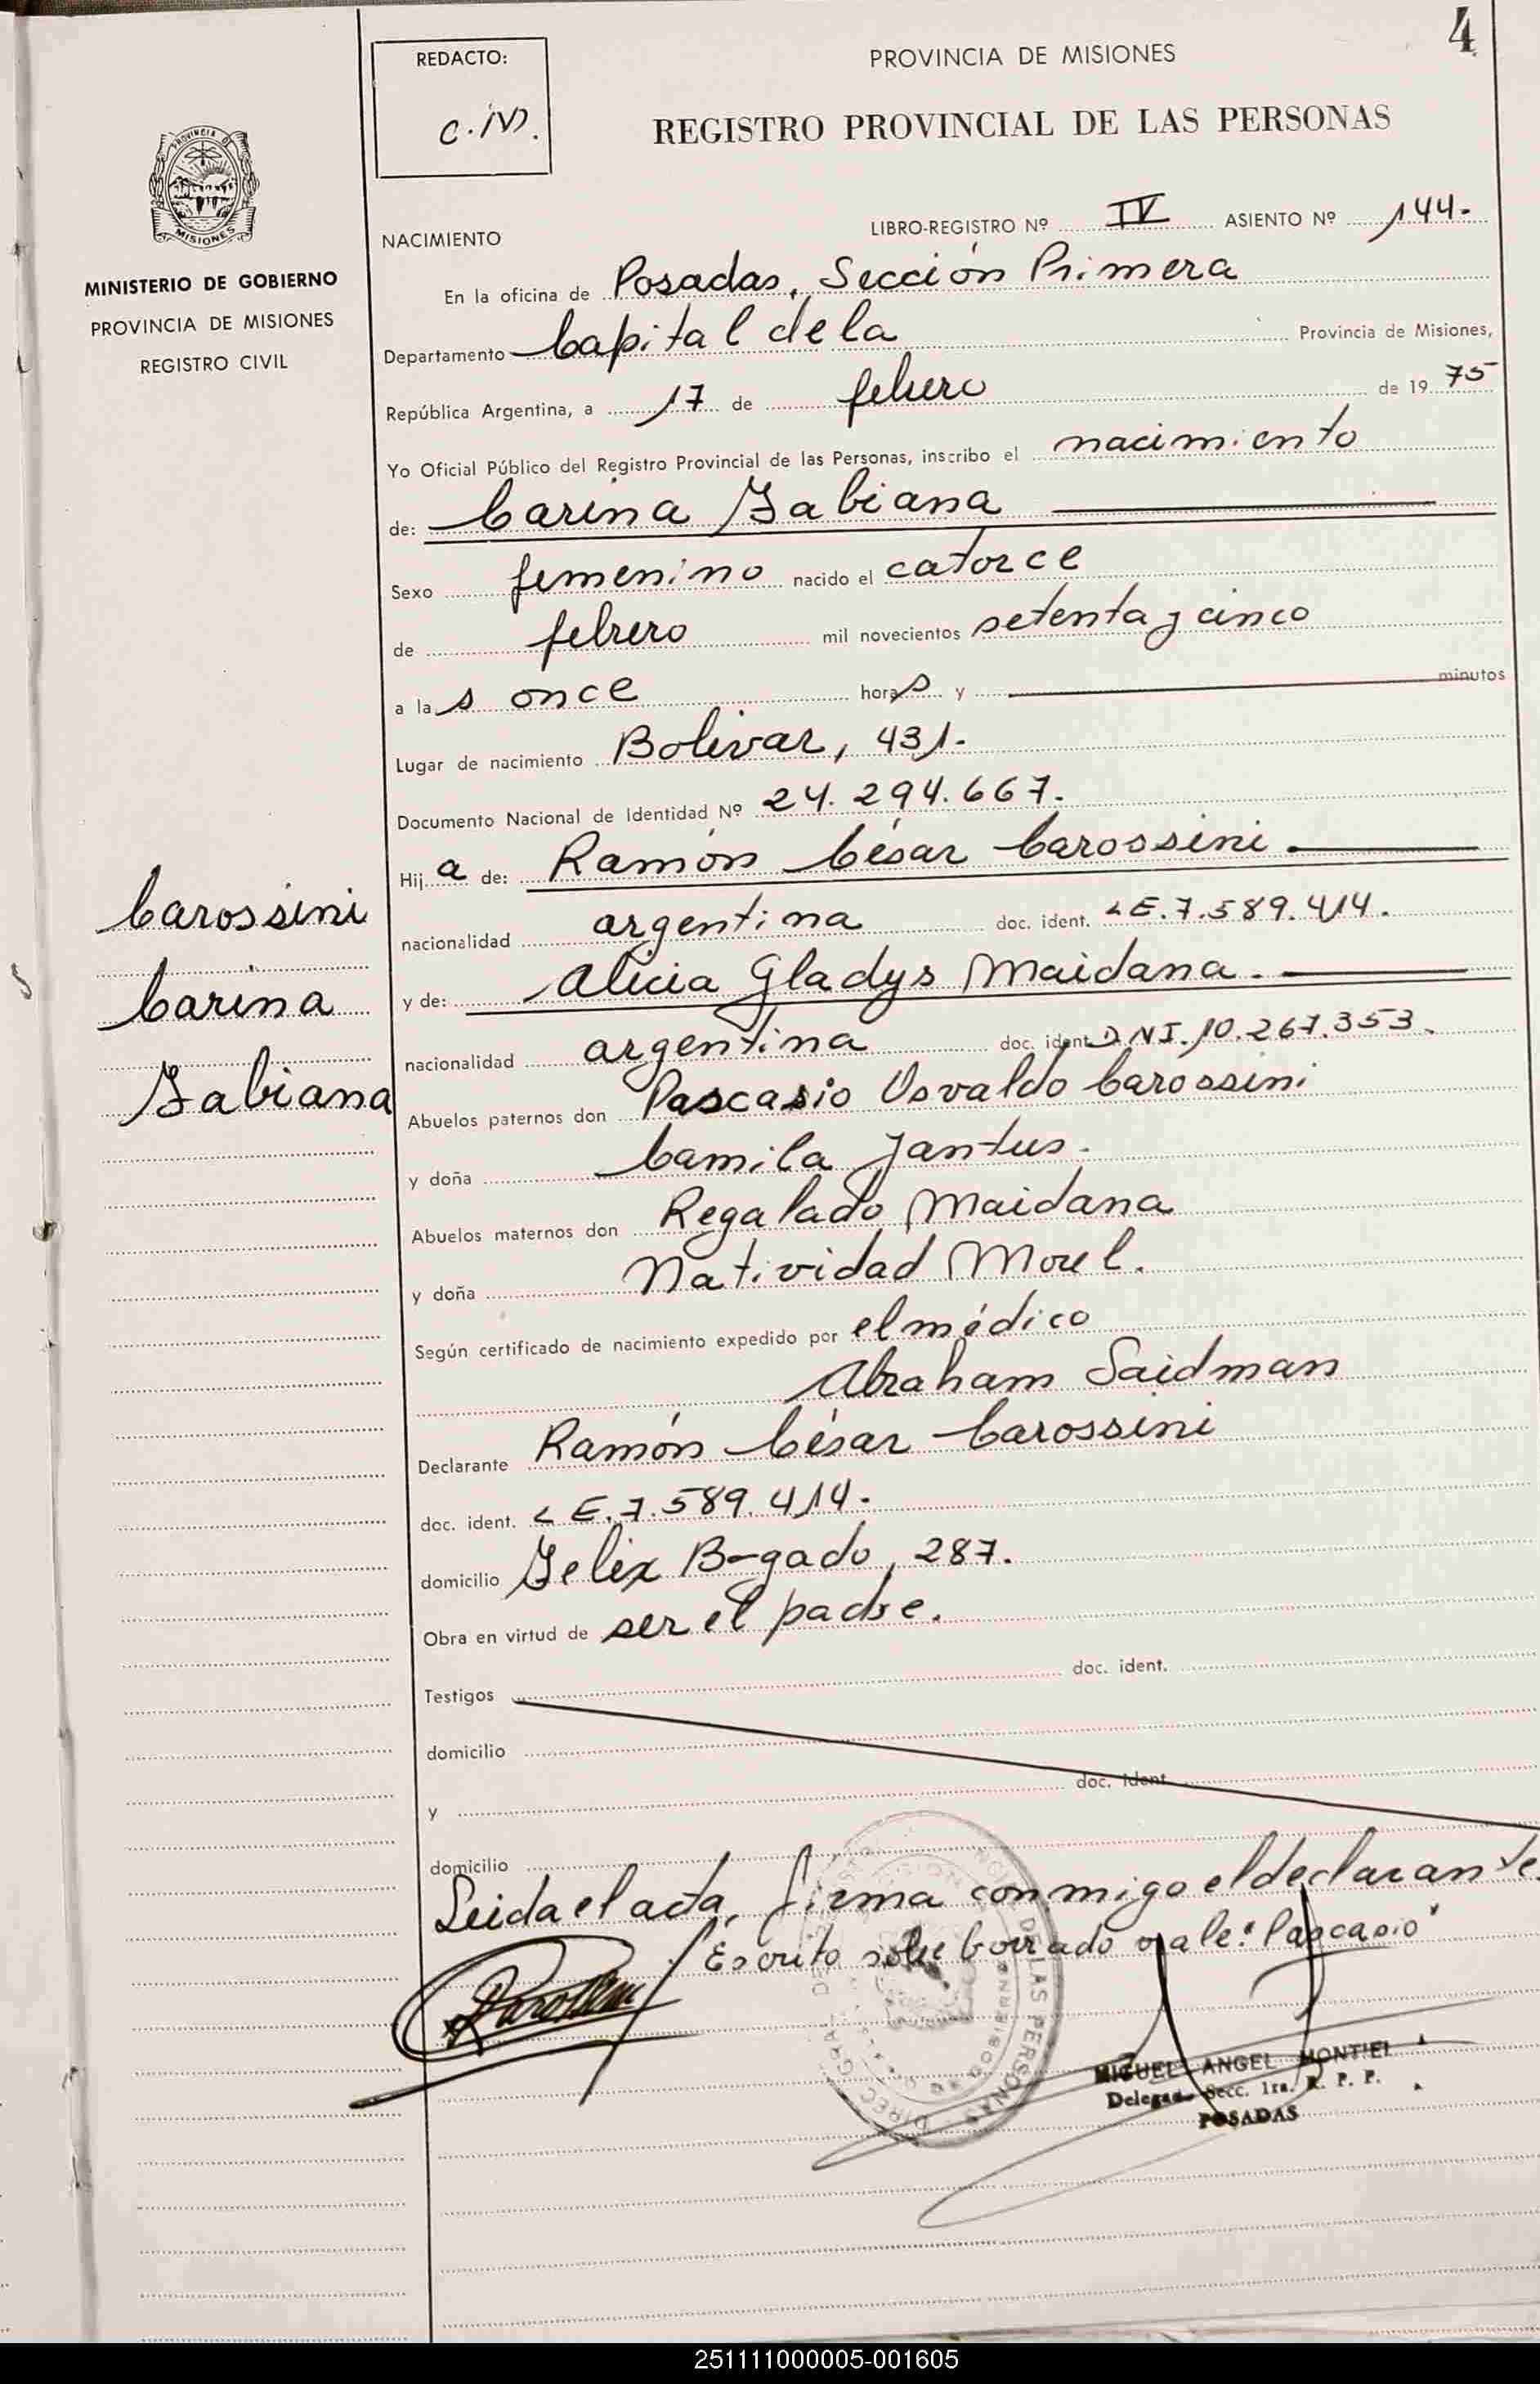 4
REDACTO:
C.M.
PROVINCIA DE MISIONES
REGISTRO PROVINCIAL DE LAS PERSONAS
PROVINCIA DE
MISIONES
MINISTERIO DE GOBIERNO
PROVINCIA DE MISIONES
REGISTRO CIVIL
NACIMIENTO
LIBRO-REGISTRO Nº IV ASIENTO Nº 144.
En la oficina de Posadas, Sección Primera
Departamento Capital de la Provincia de Misiones,
República Argentina, a 17 de febrero de 19 75
Yo Oficial Público del Registro Provincial de las Personas, inscribo el nacimiento
de: Carina Fabiana
Sexo femenino nacido el catorce
de febrero mil novecientos setenta y cinco
a las once horas y minutos
Lugar de nacimiento Bolivar, 431.
Documento Nacional de Identidad Nº 24.294.667.
Hija de: Ramón César Carossini
nacionalidad argentina doc. ident. LE.7.589.414.
y de: Alicia Gladys Maidana.
nacionalidad argentina doc. ident DNI.10.267.353.
Abuelos paternos don Pascasio Osvaldo Carossini
y doña Camila Jantus.
Abuelos maternos don Regalado Maidana
y doña Natividad Morel.
Según certificado de nacimiento expedido por el médico
Abraham Saidman
Declarante Ramón César Carossini
doc. ident. LE.7.589.414.
domicilio Felix B-gado, 287.
Obra en virtud de ser el padre.
Testigos doc. ident.
domicilio
y doc. ident
domicilio
Leida el acta, firma conmigo el declarante.
Escrito sobre borrado vale: "Pascasio"
MIGUEL ANGEL MONTIEL
Delegado Secc. 1ra. R. P. P.
POSADAS
Carossini
Carina
Fabiana
251111000005-001605